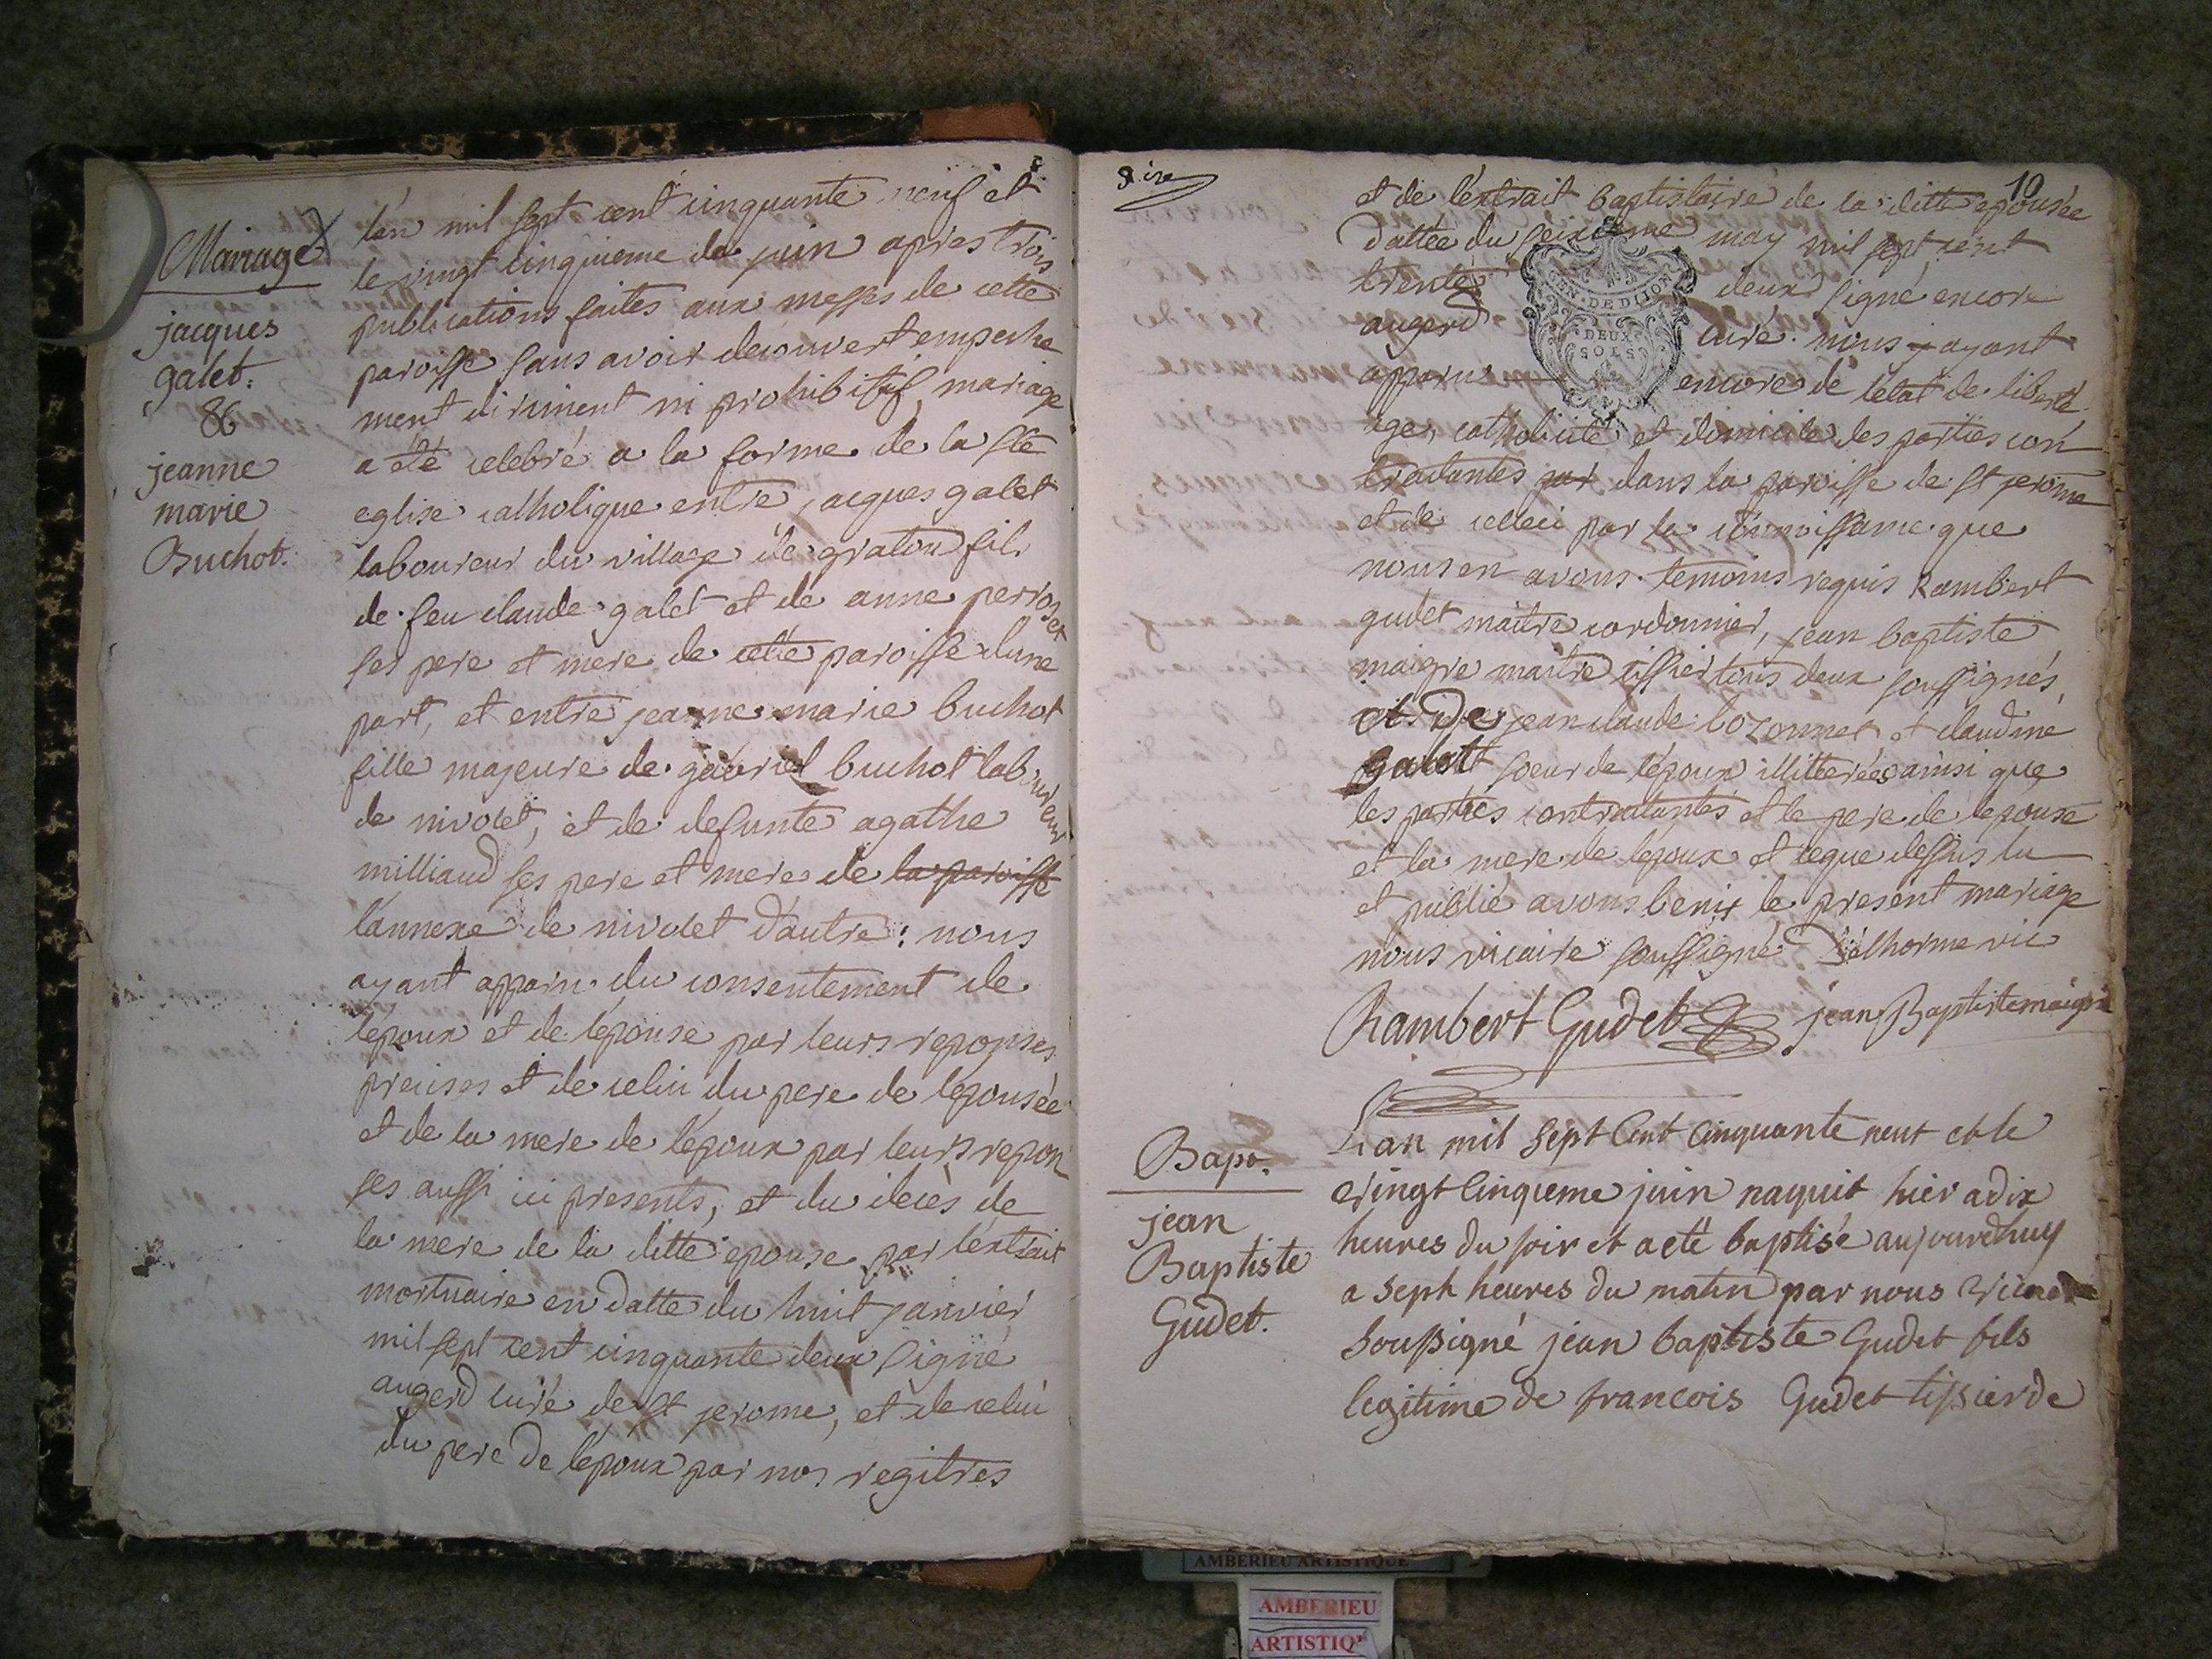 Mariage
jacques
galet.
&
jeanne
marie
Buchot.
l'an mil sept cent cinquante neuf et
le vingt cinquieme de juin apres trois
publications faites aux messes de cette
paroisse sans avoir decouvert empeche
ment diriment ni prohibitif, mariage
a été celebré a la forme de la ste
eglise catholique entre jacques galet
laboureur du village de graton fils
de feu claude galet et de anne perroset
ses pere et mere de cette paroisse d'une
part, et entre jeanne marie buchot
fille majeure de gabriel buchot laboureur
de nivolet, et de defunte agathe
milliaud ses pere et mere de la paroisse
l'annexe de nivolet d'autre: nous
ayant apparu du consentement de
l'epoux et de l'epouse par leurs reponses
precises et de celui du pere de l'epousée
et de la mere de l'epoux par leurs repon
ses aussi ici presents, et du deces de
la mere de la ditte epouse par l'extrait
mortuaire en datte du huit janvier
mil sept cent cinquante deux signé
augerd curé de st jerome, et de celui
du pere de l'epoux par nos regitres
10
et de l'extrait baptistaire de la ditte epousée
dattée du seizieme may mil sept cent
trente deux signé encore
augerd curé. nous y ayant
apparu encore de l'etat de liberté
age, catholicité et domicile des parties con
tractantes par dans la paroisse de st jerome
et de celleci par la connoissance que
nous en avons. temoins requis Rambert
gudet maitre cordonnier, jean baptiste
maigre maitre tissier tous deux soussignés,
et de jean claude bozonnet et claudine
galett soeur de l'epoux illitterées ainsi que
les parties contractantes et le pere de l'epouse
et la mere de l'epoux et ceque dessus lu
et publié avons benit le present mariage
nous vicaire soussigné Delhorme vic
Rambert Gudet jean Baptiste maigre
GEN. DE DIJON
DEUX
SOLS
Bapt.
jean
Baptiste
Gudet.
L'an mil sept Cent Cinquante neuf et le
vingt Cinquieme juin naquit hier a dix
heures du soir et a eté baptisé aujourdhuy
a sept heures du matin par nous vicaire
soussigné jean baptiste Gudet fils
legitime de francois Gudet tissier de
AMBERIEU ARTISTIQUE
AMBERIEU
ARTISTIQ